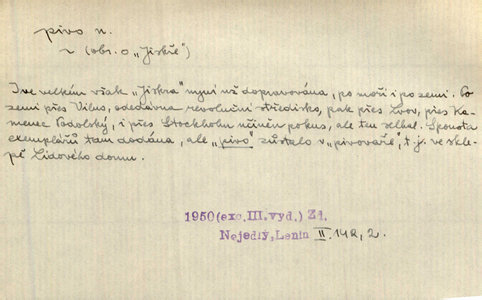 pivo n.
z (obr. o „Jiskře“)
I ve velkém však „Jiskra“ nyní už dopravována, po moři i po zemi. Po
zemi přes Vilno, odedávna revoluční středisko, pak přes Lvov, přes Ka-
menec Podolský, i přes Stockholm učiněn pokus, ale ten selhal. Spousta
exemplářů tam dodána, ale „pivo“ zůstalo v „pivovaře“, t.j. ve skle-
pě Lidového domu.
1950(exc.III.vyd.) Zd.
Nejedlý, Lenin II. 142, 2.